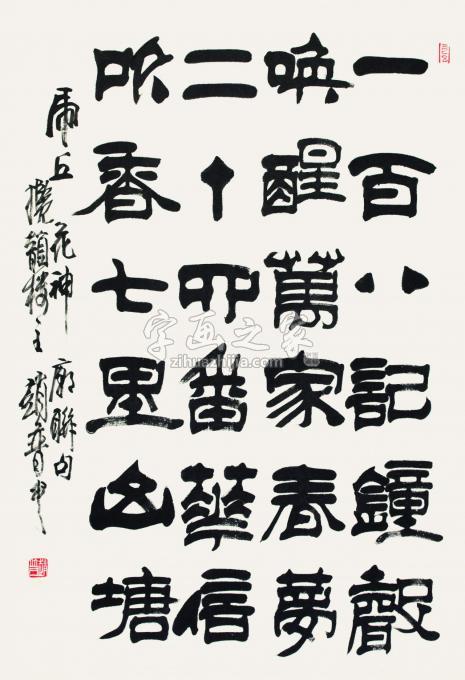 一百八記鐘聲
喚醒萬家春夢
二十四番華信
吹香七里山塘
虎丘花神廟聯句
攬韻樓主趙
字画之家
zihuazhijia.com